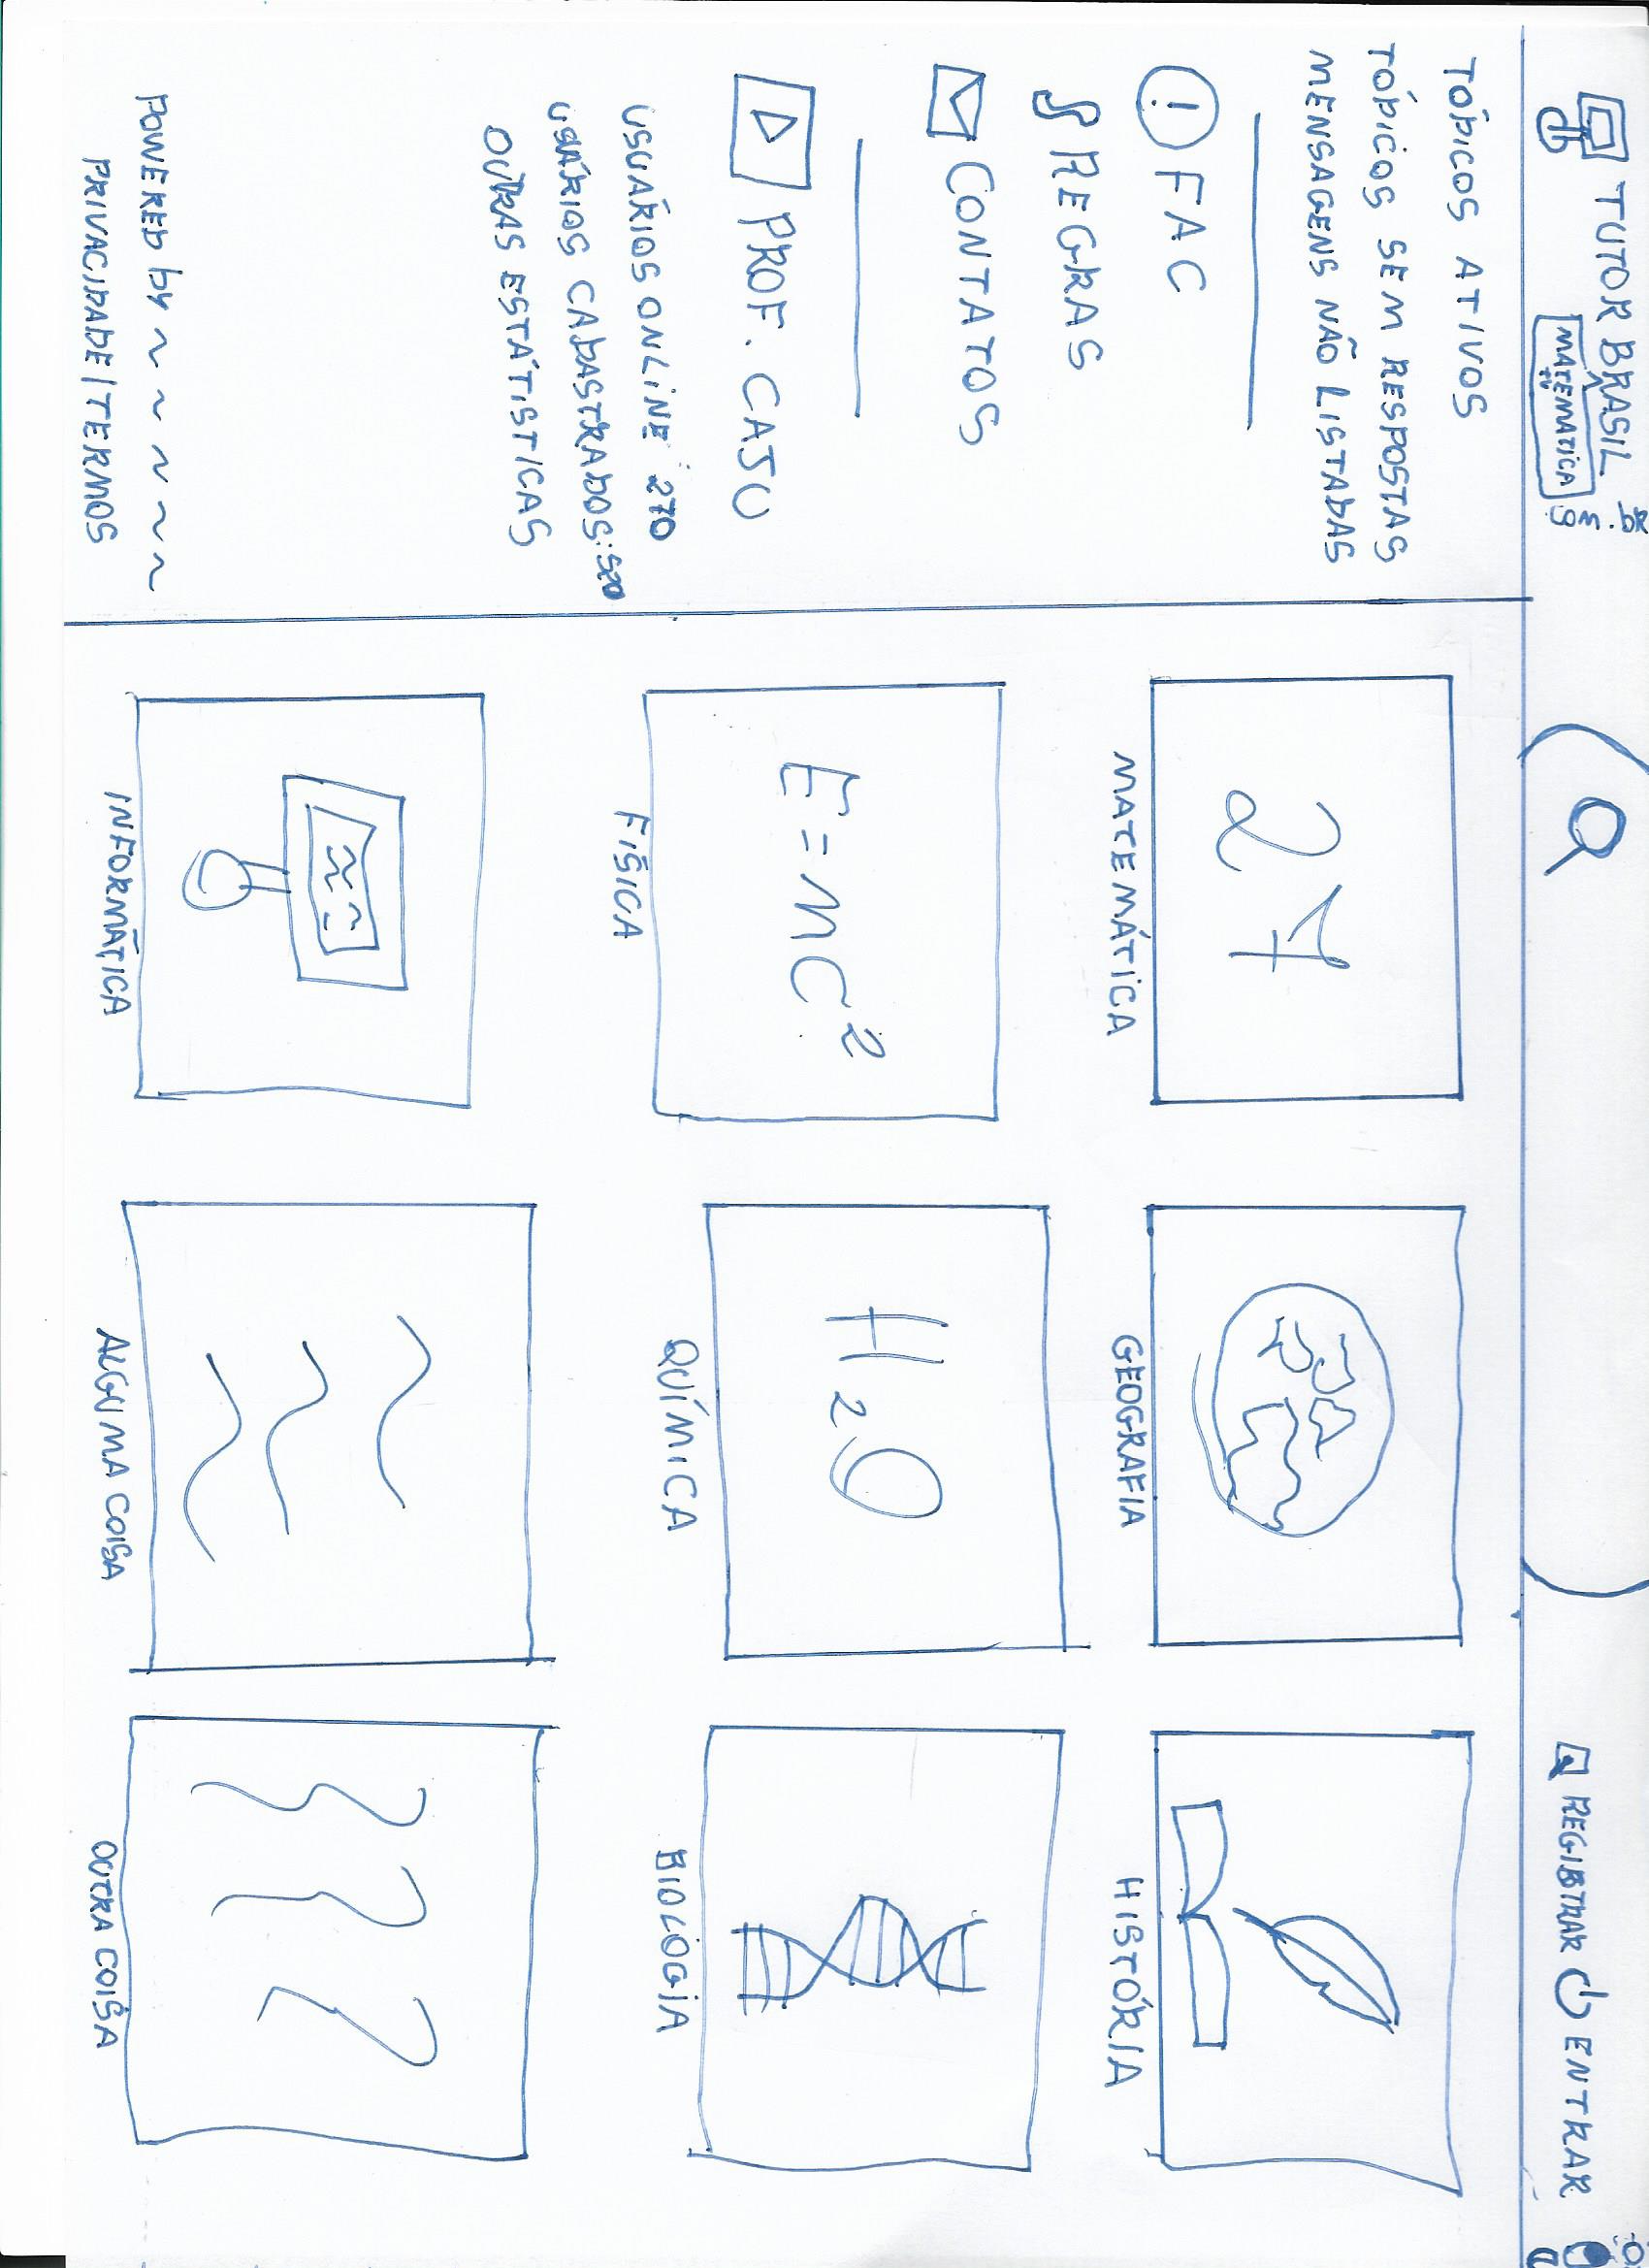 TUTOR BRASIL
MATEMÁTICA
REGISTRAR ENTRAR
TÓPICOS ATIVOS
TÓPICOS SEM RESPOSTAS
MENSAGENS NÃO LISTADAS
! FAC
REGRAS
CONTATOS
PROF. CAJU
USUÁRIOS ONLINE: 270
USUÁRIOS CADASTRADOS: 520
OUTRAS ESTÁTISTICAS
POWERED by ~ ~ ~ ~ ~
PRIVACIDADE / TERMOS
27
MATEMÁTICA
GEOGRAFIA
HISTÓRIA
E = MC²
FISICA
H2O
QUÍMICA
BIOLOGIA
INFORMÁTICA
ALGUMA COISA
OUTRA COISA